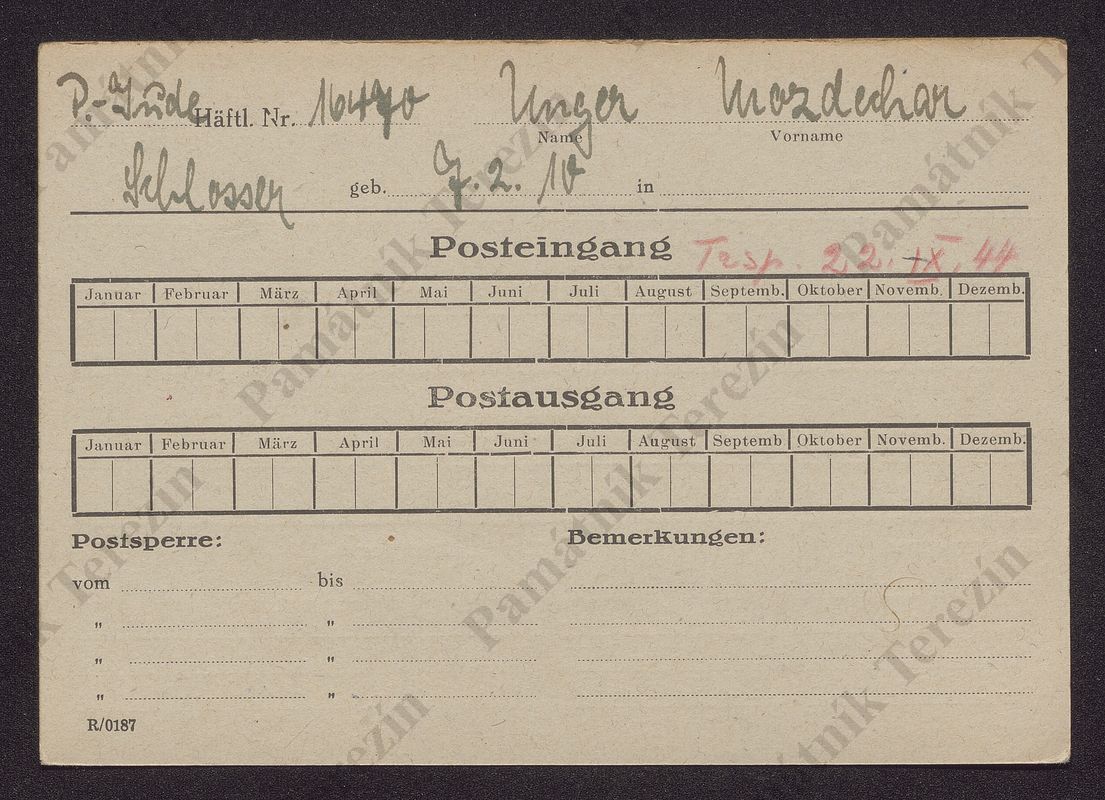 P.-Jude Häftl. Nr. 16470 Unger Mozdechar
Name Vorname
Schlosser geb. 7. 2. 10 in
Posteingang Trsp. 22. IX. 44
Januar Februar März April Mai Juni Juli August Septemb. Oktober Novemb. Dezemb.
Postausgang
Januar Februar März April Mai Juni Juli August Septemb Oktober Novemb. Dezemb.
Postsperre: Bemerkungen:
vom bis
„ „
„ „
„ „
R/0187
Památník Terezín